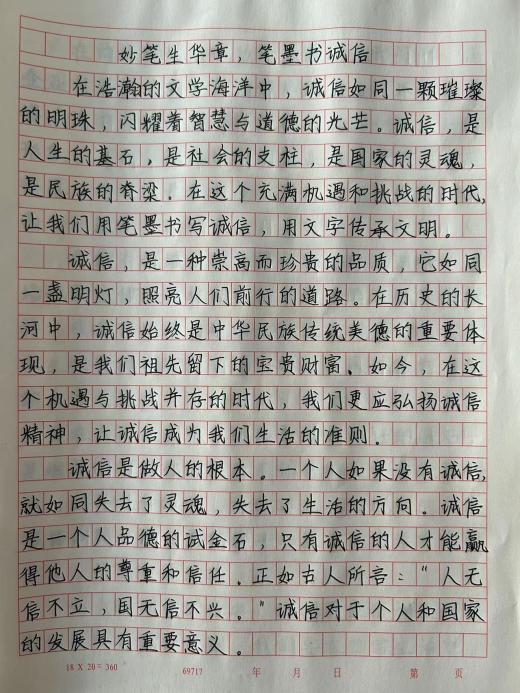 妙笔生华章，笔墨书诚信
在浩瀚的文学海洋中，诚信如同一颗璀璨
的明珠，闪耀着智慧与道德的光芒。诚信，是
人生的基石，是社会的支柱，是国家的灵魂，
是民族的脊梁。在这个充满机遇和挑战的时代，
让我们用笔墨书写诚信，用文字传承文明。
诚信，是一种崇高而珍贵的品质，它如同
一盏明灯，照亮人们前行的道路。在历史的长
河中，诚信始终是中华民族传统美德的重要体
现，是我们祖先留下的宝贵财富。如今，在这
个机遇与挑战并存的时代，我们更应弘扬诚信
精神，让诚信成为我们生活的准则．
诚信是做人的根本。一个人如果没有诚信，
就如同失去了灵魂，失去了生活的方向。诚信
是一个人品德的试金石，只有诚信的人才能赢
得他人的尊重和信任．正如古人所言：“人无
信不立，国无信不兴。”诚信对于个人和国家
的发展具有重要意义。
18 X 20 = 360 69717 年 月 日 第 页